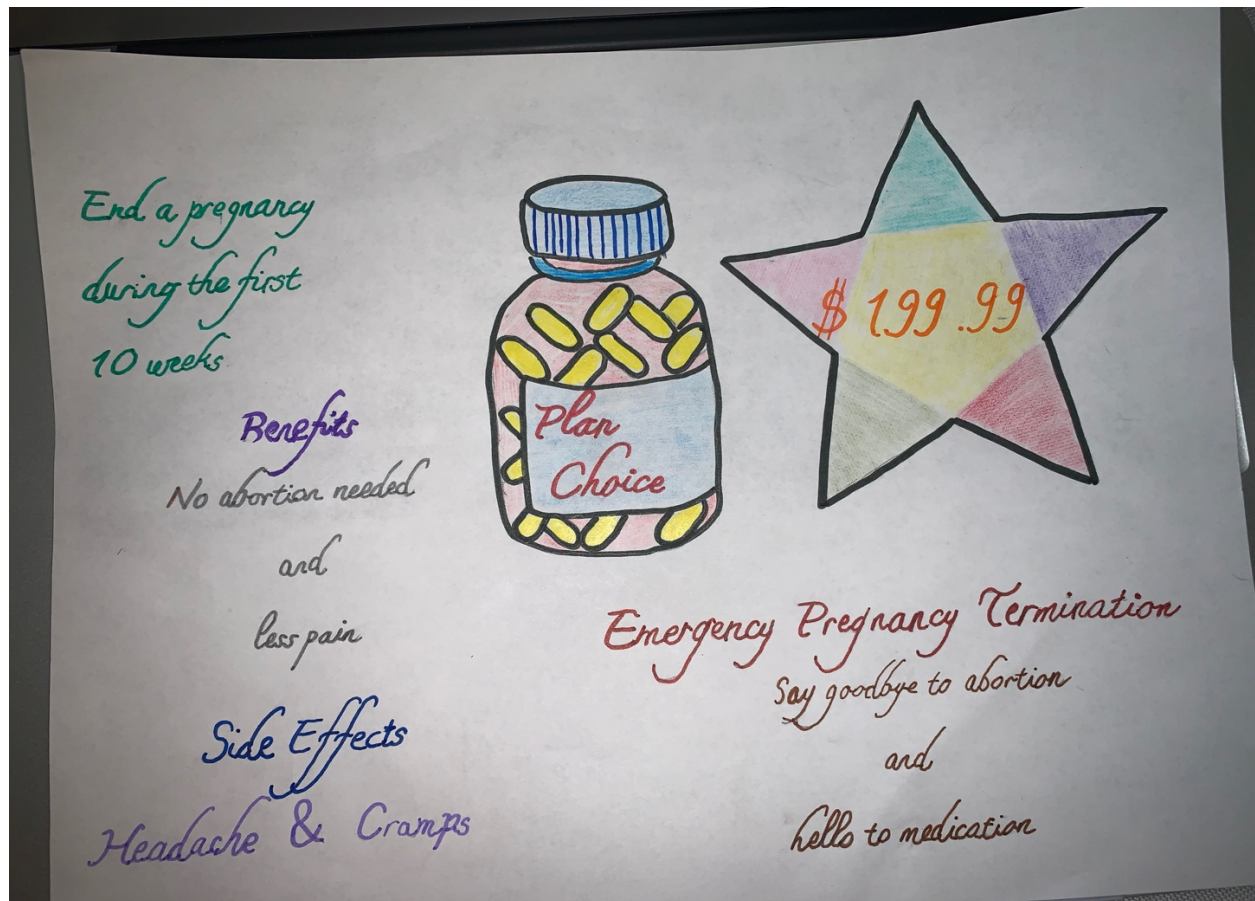 End a pregnancy
during the first
10 weeks
Benefits
No abortion needed
and
less pain
Side Effects
Headache & Cramps
Plan
Choice
$ 199.99
Emergency Pregnancy Termination
Say goodbye to abortion
and
hello to medication